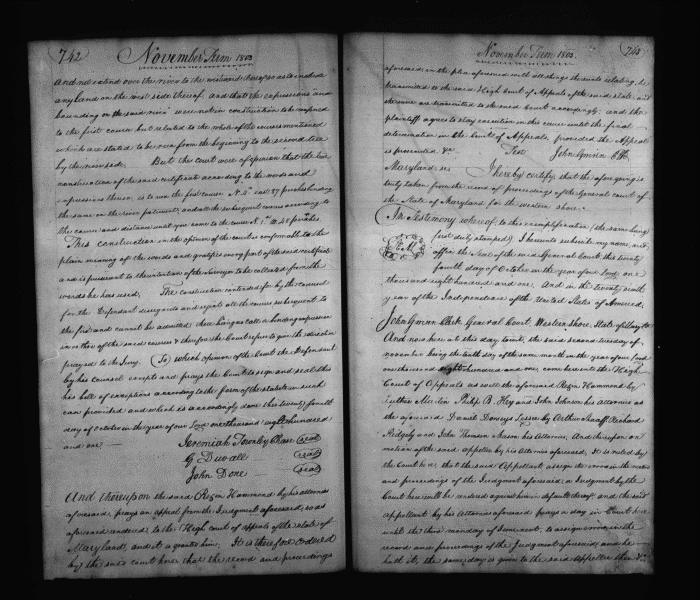 742
November Term 1803
and not extend over the river to the westward thereof so as to include
any land on the west side thereof, and that the expressions and
bounding on the said river were not in construction to be confined
to the first course but related to the whole of the courses mentioned
which are stated to be run from the beginning to the second tree
by the now said. But the court were of opinion that the true
construction of the said certificate according to the words and
expressions thereof, is to run the first course N. East 37 perches binding
the same on the river patowment, and all the subsequent courses according to
the course and distance until you come to the course at perches
This construction in the opinion of the court is conformable to the
plain meaning of the words and gratifies every part of the said certificate
and is pursuant to the intention of the surveyor to be collected from the
words he has used. The construction contended for by the counsel
for the Defendant disregards and rejects all the courses subsequent to
the first and cannot be admitted there being no call or binding expression
in either of the said courses & therefore the Court refuse to give the direction
prayed to the Jury. To which opinion of the Court the Defendant
by his counsel excepts and prays the Court to sign and seal this
his bill of exceptions according to the form of the statute in such
case provided and which is accordingly done this twenty fourth
day of October in the year of our Lord one thousand eight hundred
and one
Jeremiah Townley Chase (seal)
G Duvall (seal)
John Done (seal)
And thereupon the said Rezin Hammond by his attornies
aforesaid, prays an appeal from the Judgment aforesaid, so as
aforesaid rendered to the High court of appeals of the state of
Maryland, and it is granted him. It is therefore Ordered
by the said court here that the record and proceedings
November Term 1803.
743
aforesaid, in the plea aforesaid with all things thereunto relating, be
transmitted to the said High Court of Appeals of the said state, and
the same are transmitted to the said Court accordingly. and the
plaintiff agrees to stay execution in this cause until the final
determination in the Court of Appeals provided the Appeal
is prosecuted &c. Test John Gwinn Clk.
Maryland ss. I hereby certify, that the aforegoing is
truly taken from the record of proceedings of the General court of
the State of Maryland for the western shore.
In Testimony whereof, to this exemplification (the same being
first duly stamped) I hereunto subscribe my name and
affix the Seal of the said General Court this twenty
fourth day of October in the year of our Lord one
thousand eight hundred and one. And in the twenty sixth
year of the Independence of the United States of America.
John Gwinn Clerk General Court, Western Shore, State of Maryland
And now here at this day (to wit, the second tuesday of
november being the tenth day of the same month in the year of our Lord
one thousand eight hundred and one, come here into the High
Court of Appeals as well the aforesaid Rezin Hammond by
Luther Martin Philip B. Key and John Johnson his attornies as
the aforesaid Daniel Dorseys Lessee by Arthur Shaaff, Richard
Ridgely and John Thomson Mason his Attornies. And thereupon on
motion of the said appellee by his Attornies aforesaid, It is ruled by
the Court here, that the said Appellant assign the errors in the record
and proceedings of the Judgment aforesaid, or Judgment by the
Court here will be entered against him in default thereof: and the said
appellant by his Attornies aforesaid prays a day in Court here
until the third monday of June next, to assign errors in the
record and proceedings of the Judgment aforesaid, and he
hath it, the same day is given to the said Appellee then &c.